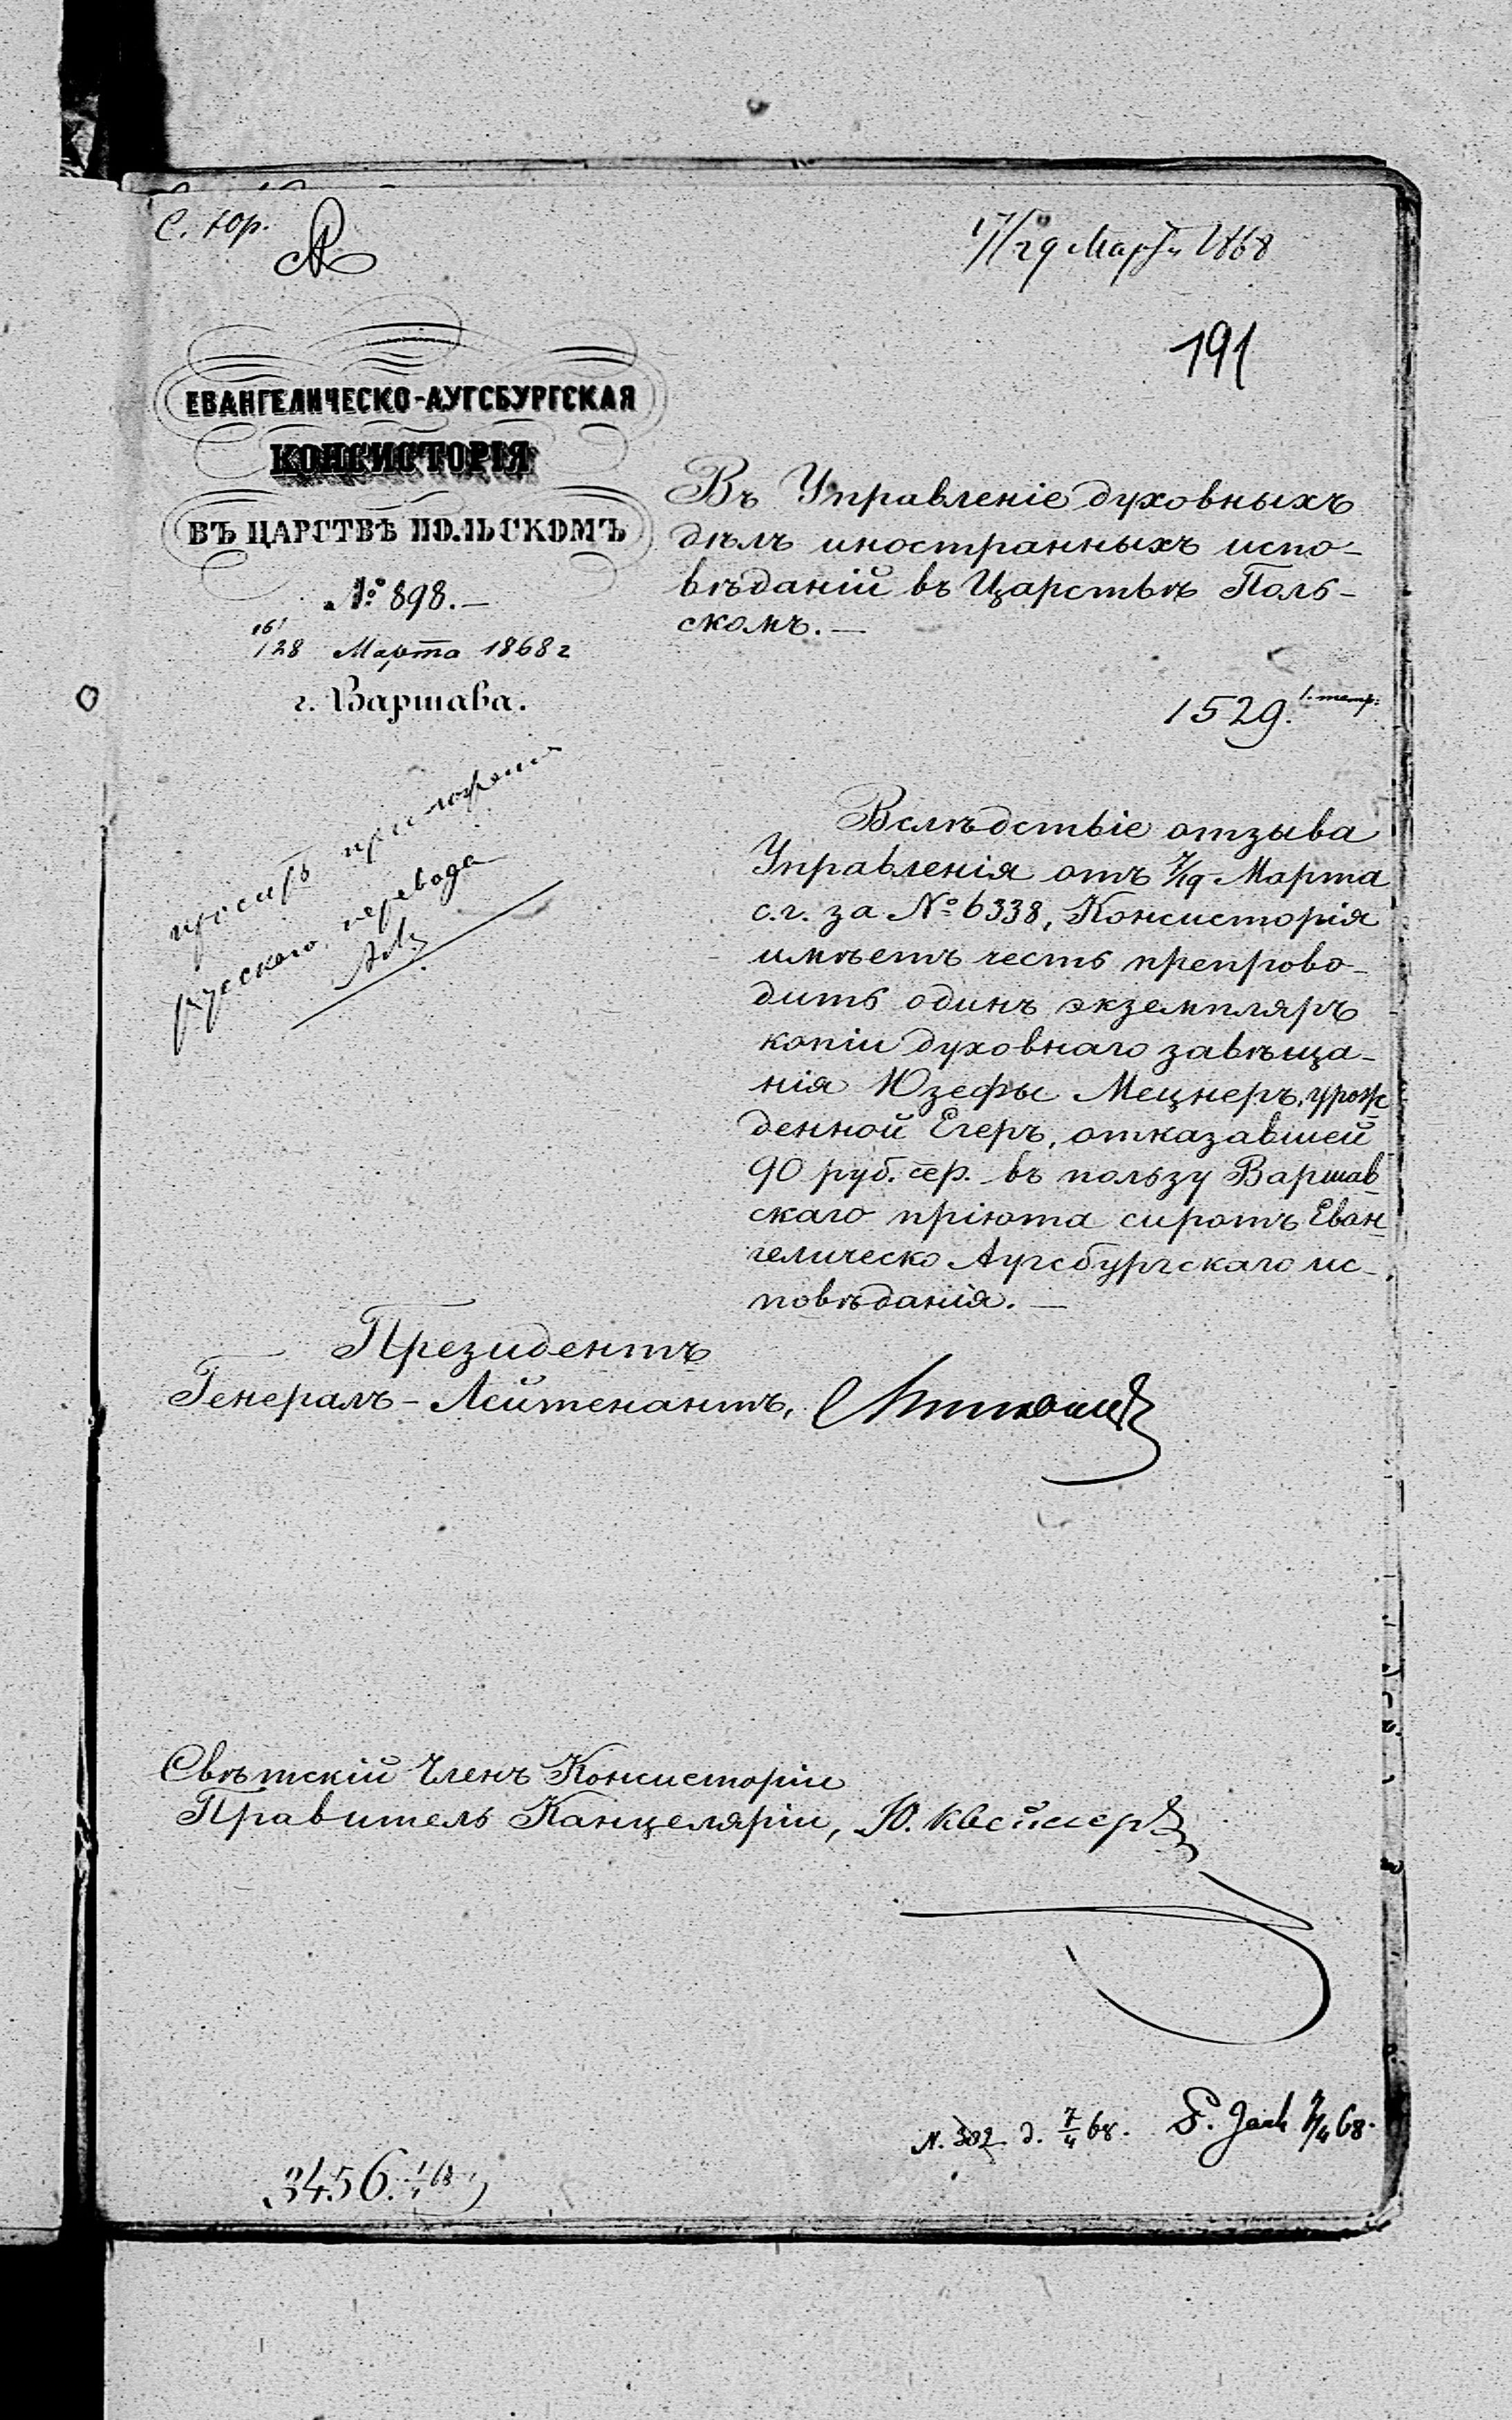 С. Юр.
17/29 Марта 1868
191
ЕВАНГЕЛИЧЕСКО-АУГСБУРГСКАЯ
КОНСИСТОРІЯ
ВЪ ЦАРСТВѢ ПОЛЬСКОМЪ
№ 898.—
16/28 Марта 1868 г
г. Варшава.
Въ Управленіе духовныхъ
дѣлъ иностранныхъ испо-
вѣданій въ Царствѣ Поль-
скомъ.—
1529.
просить приложенія
русскаго перевода
Вслѣдствіе отзыва
Управленія отъ 7/19 Марта
с.г. за № 6338, Консисторія
имѣетъ честь препрово-
дить одинъ экземпляръ
копіи духовнаго завѣща-
нія Юзефы Мецнеръ, урож
денной Егеръ, отказавшей
90 руб. сер. въ пользу Варшав
скаго пріюта сиротъ Еван
гелическо Аугсбургскаго ис-
повѣданія.—
Президентъ
Генералъ-Лейтенантъ,
Свѣтскій Членъ Консисторіи
Правитель Канцеляріи, Ю.
N. 302 д. 7/4 68.
7/4 68.
3456.